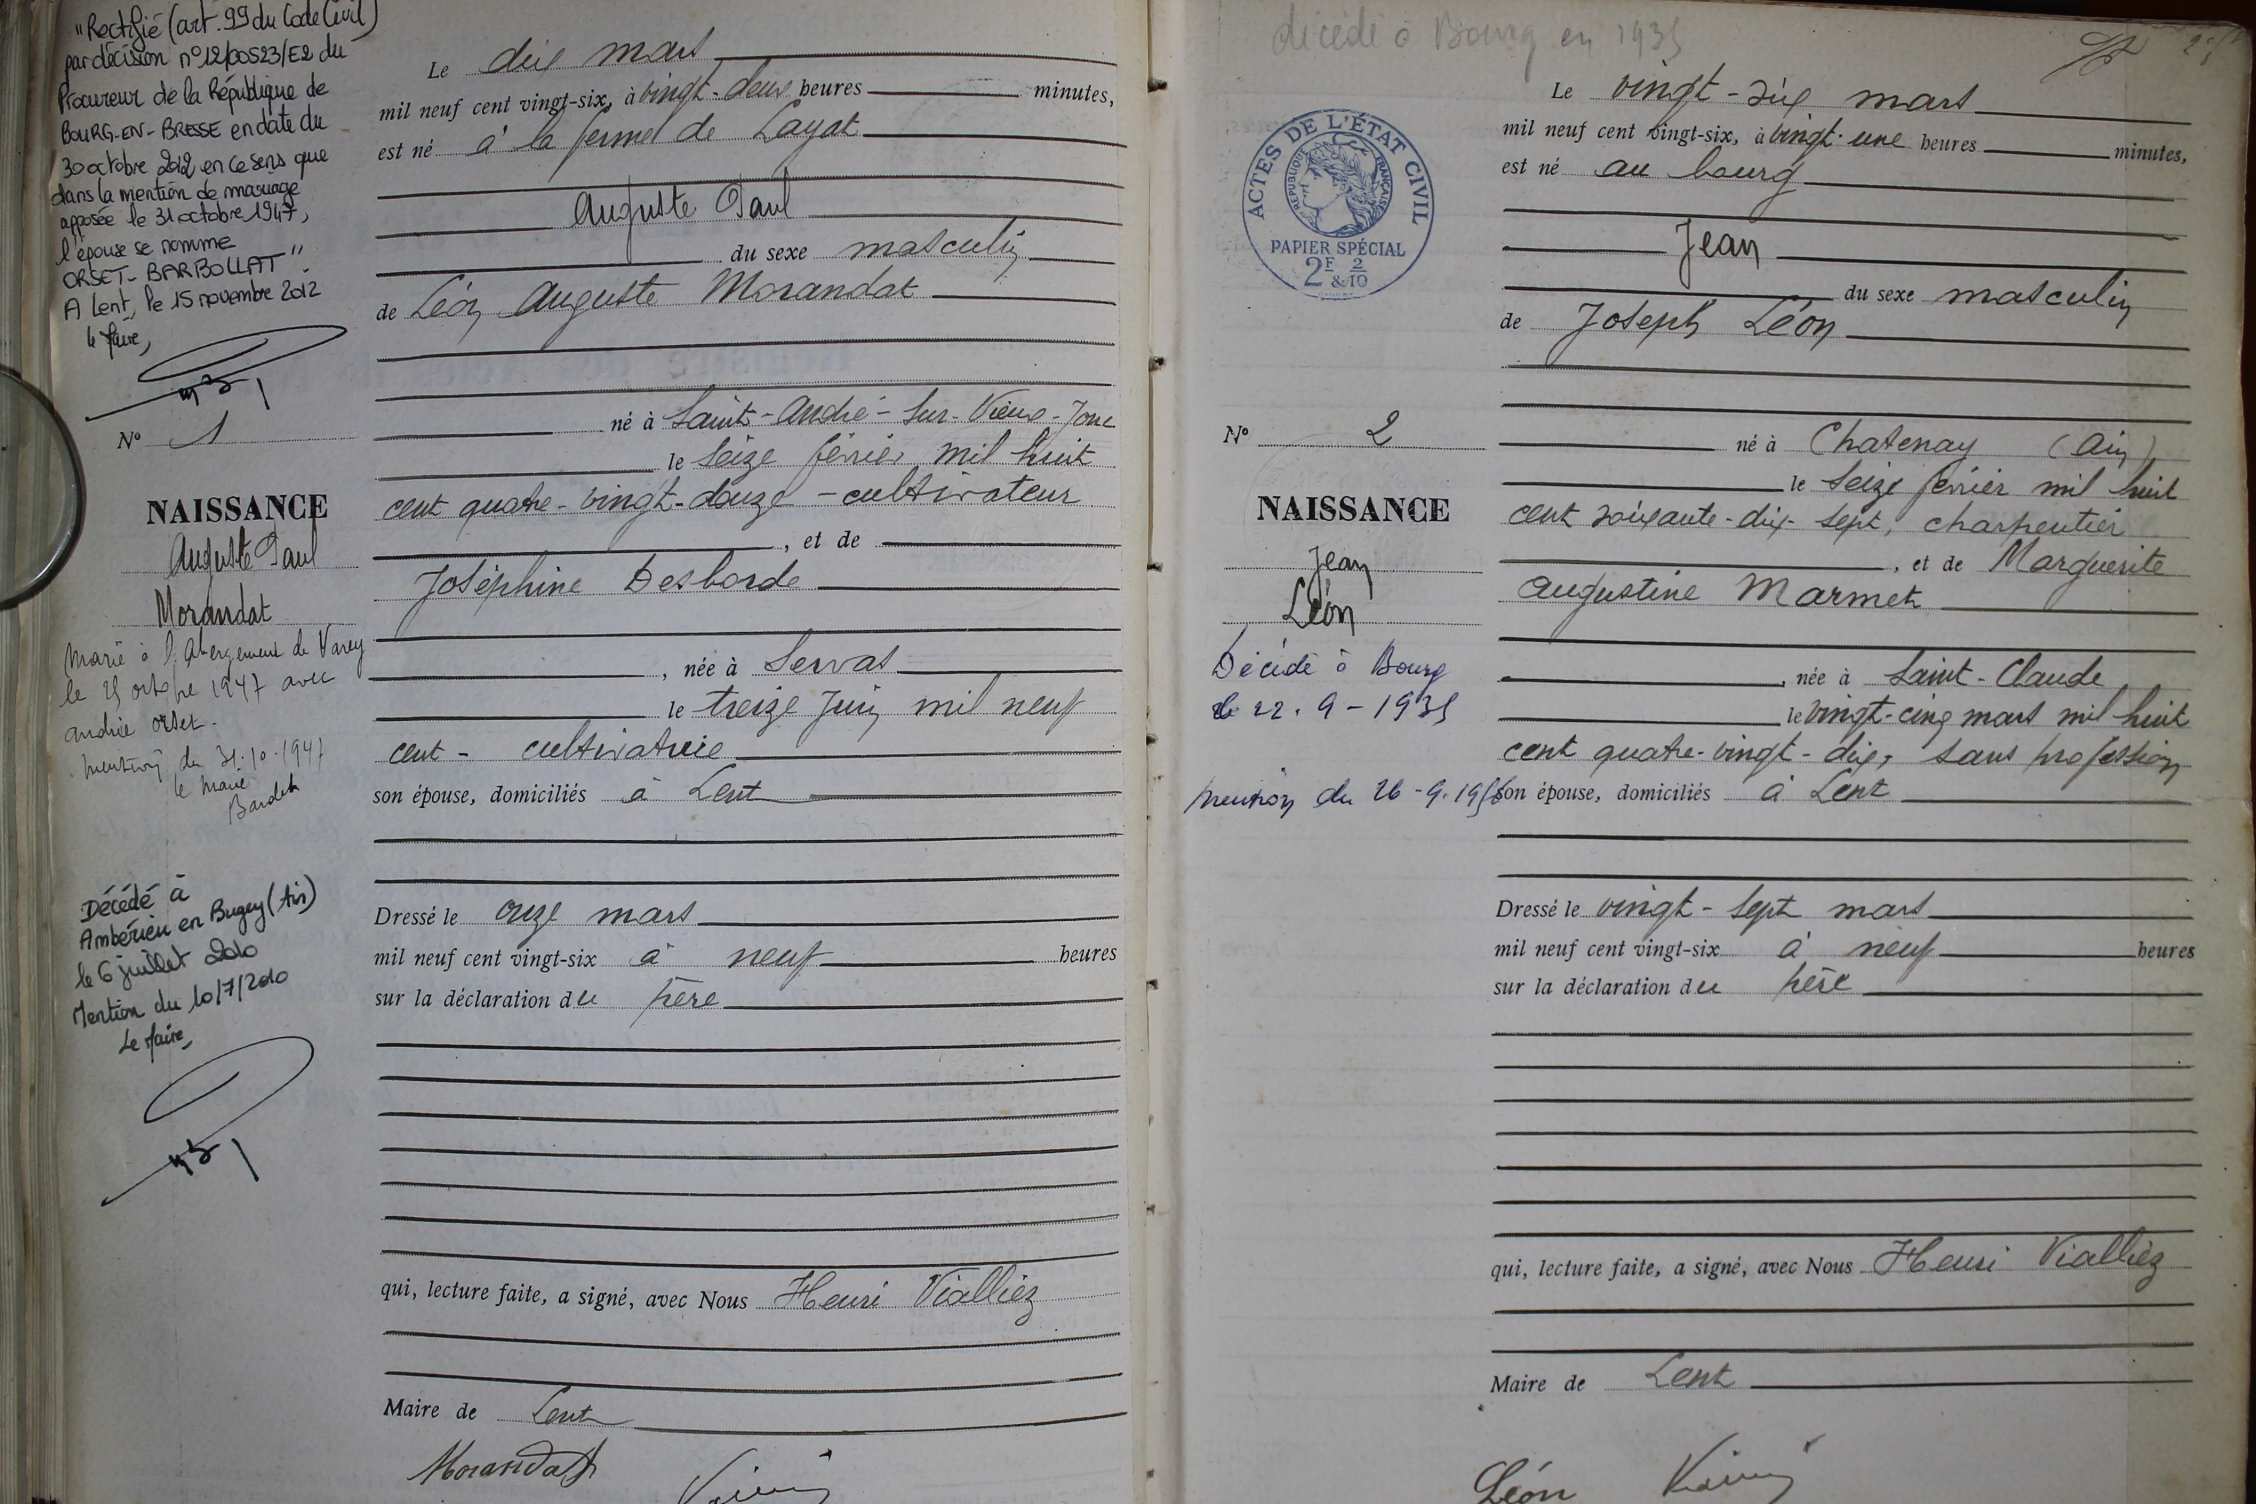 "Rectifié (art. 99 du Code Civil)
par décision n°12/00523/E2 du
Procureur de la République de
BOURG-EN-BRESSE en date du
30 octobre 2012 en ce sens que
dans la mention de mariage
apposée le 31 octobre 1947,
l'épouse se nomme
ORSET-BARBOLLAT"
A Lent, le 15 novembre 2012
le Maire,
N° 1
NAISSANCE
Auguste Paul
Morandat
Marié à l'Abergement de Varey
le 25 octobre 1947 avec
andrée orset.
mention du 31.10.1947
le Maire
Bardet
Décédé à
Ambérieu en Bugey (Ain)
le 6 juillet 2010
Mention du 10/7/2010
Le Maire,
Le dix mars
mil neuf cent vingt-six, à vingt-deux heures minutes,
est né à la ferme de Layat
Auguste Paul
du sexe masculin
de Léon Auguste Morandat
né à Saint-André-sur-Vieux-Jonc
le seize février mil huit
cent quatre-vingt-douze - cultivateur
, et de
Joséphine Desborde
, née à Servas
le treize Juin mil neuf
cent - cultivatrice
son épouse, domiciliés à Lent
Dressé le onze mars
mil neuf cent vingt-six à neuf heures
sur la déclaration du père
qui, lecture faite, a signé, avec Nous Henri Vialliez
Maire de Lent
Morandat
décédé à Bourg en 1935
ACTES DE L'ÉTAT CIVIL
RÉPUBLIQUE FRANÇAISE
PAPIER SPÉCIAL
2F & 2/10
N° 2
NAISSANCE
Jean
Léon
Décédé à Bourg
le 22.9-1935
mention du 26-9.1956
Le vingt-six mars
mil neuf cent vingt-six, à vingt-une heures minutes,
est né au bourg
Jean
du sexe masculin
de Joseph Léon
né à Chatenay (Ain)
le seize février mil huit
cent soixante-dix-sept, charpentier
, et de Marguerite
Augustine Marmet
, née à Saint-Claude
le vingt-cinq mars mil huit
cent quatre-vingt-dix, sans profession
son épouse, domiciliés à Lent
Dressé le vingt-sept mars
mil neuf cent vingt-six à neuf heures
sur la déclaration du père
qui, lecture faite, a signé, avec Nous Henri Vialliez
Maire de Lent
Léon